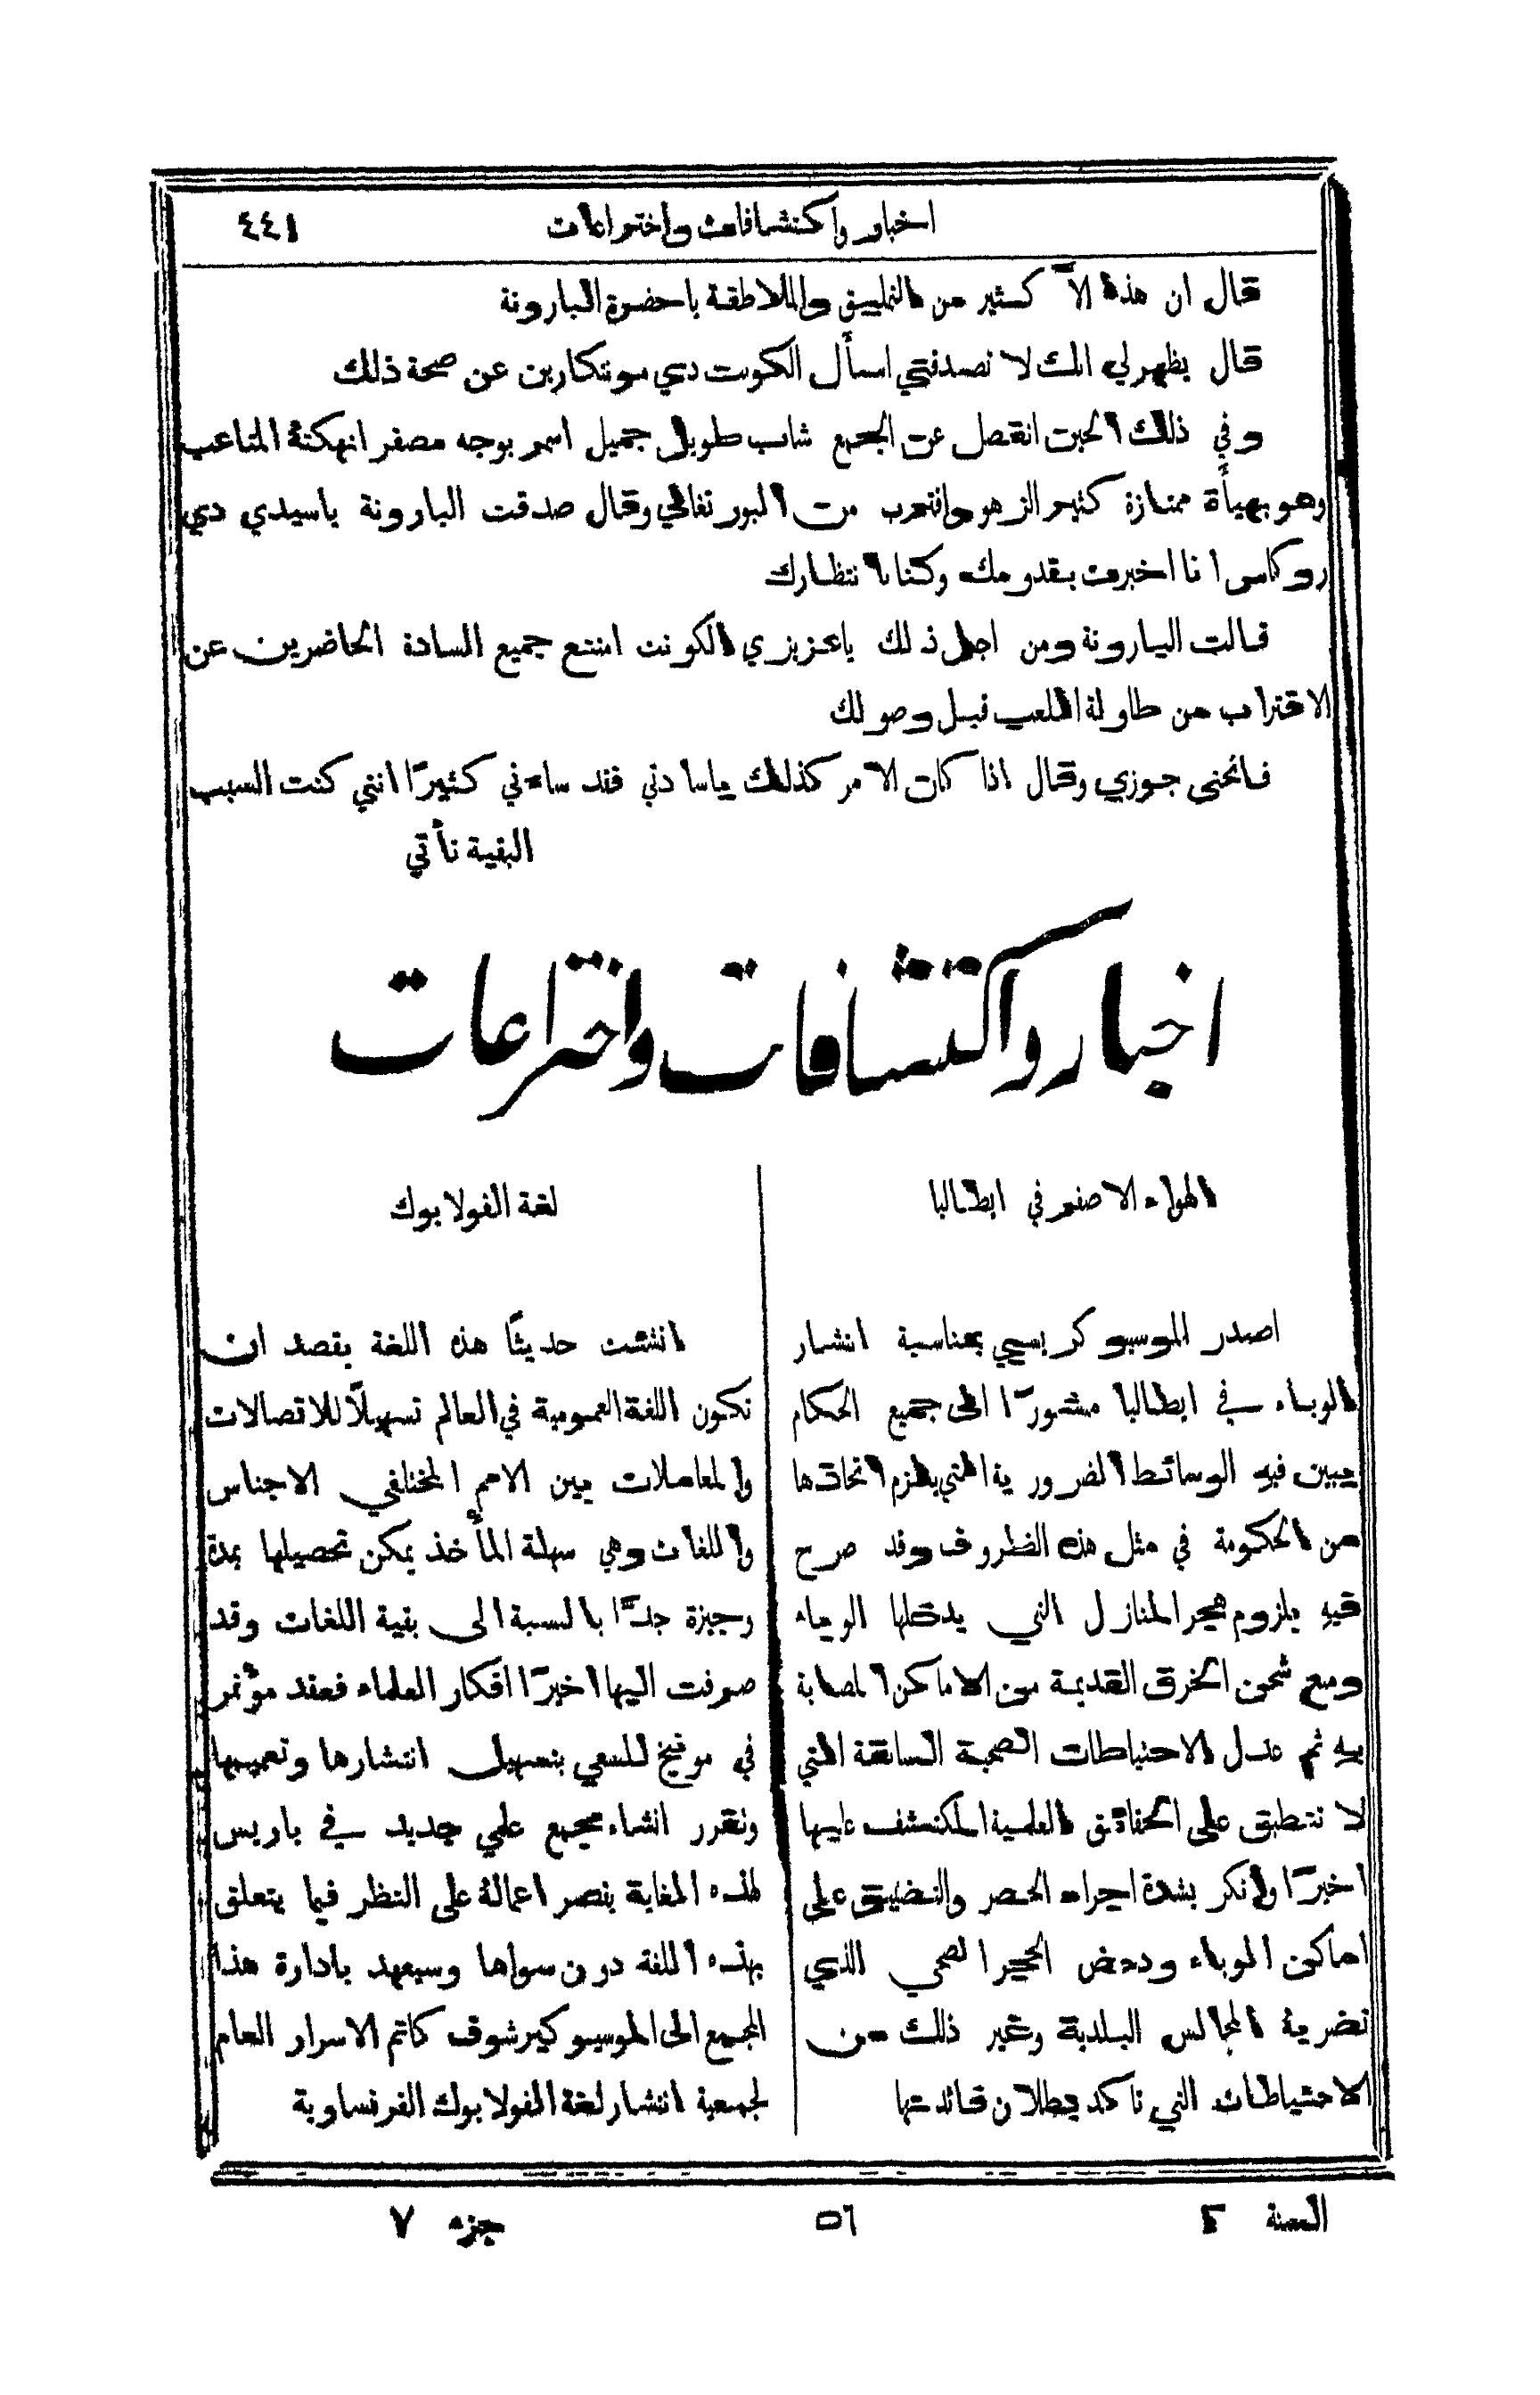 اخبار واكتشافات واختراعات
٤٤١
قال ان هذه الاّ كثير من التمليق والملاطفة يا حضرة البارونة
قال يظهر لي انك لا تصدقني اسأل الكونت دي مونتكارين عن صحة ذلك
وفي ذلك الحين انفصل عن الجمع شاب طويل جميل اسمر بوجه مصفر انهكتهُ المتاعب
وهو بهيأة ممتازة كثير الزهو واقترب من البورتغالي وقال صدقت البارونة ياسيدي دي
روكاس انا اخبرت بقدومك وكنا بانتظارك
قالت البارونة ومن اجل ذلك ياعزيزي الكونت امتنع جميع السادة الحاضرين عن
الاقتراب من طاولة اللعب قبل وصولك
فانحنى جوزي وقال اذا كان الامر كذلك ياسادتي فقد ساءني كثيرًا انني كنت السبب
البقية تأتي
اخبار واكتشافات واختراعات
الهواء الاصفر في ايطاليا
اصدر الموسيو كريسبي بمناسبة انتشار
الوباء في ايطاليا منشورًا الى جميع الحكام
يبين فيه الوسائط الضرورية التي يلزم اتخاذها
من الحكومة في مثل هذه الظروف وقد صرح
فيه بلزوم هجر المنازل التي يدخلها الوباء
ومنع شحن الخرق القديمة من الاماكن المصابة
به ثم عدل الاحتياطات الصحية السابقة التي
لا تنطبق على الحقائق العلمية المكتشف عليها
اخيرًا وانكر بشدة اجراء الحصر والتضييق على
اماكن الوباء ودحض الحجر الصحي الذي
تضربهُ المجالس البلدية وغير ذلك من
الاحتياطات التي تاكد بطلان فائدتها
لغة الفولابوك
انشئت حديثًا هذه اللغة بقصد ان
تكون اللغة العمومية في العالم تسهيلاً للاتصالات
والمعاملات بين الامم المختلفي الاجناس
واللغات وهي سهلة المأخذ يمكن تحصيلها بمدة
وجيزة جدًّا بالنسبة الى بقية اللغات وقد
صرفت اليها اخيرًا افكار العلماء فعقد مؤتمر
في مونيخ للسعي بتسهيل انتشارها وتعميمها
وتقرر انشاء مجمع علمي جديد في باريس
لهذه الغاية يقصر اعمالهُ على النظر فيما يتعلق
بهذه اللغة دون سواها وسيعهد بادارة هذا
المجمع الى الموسيو كيرشوف كاتم الاسرار العام
لجمعية انتشار لغة الفولابوك الفرنساوية
السنة ٤
٥٦
جزء ٧